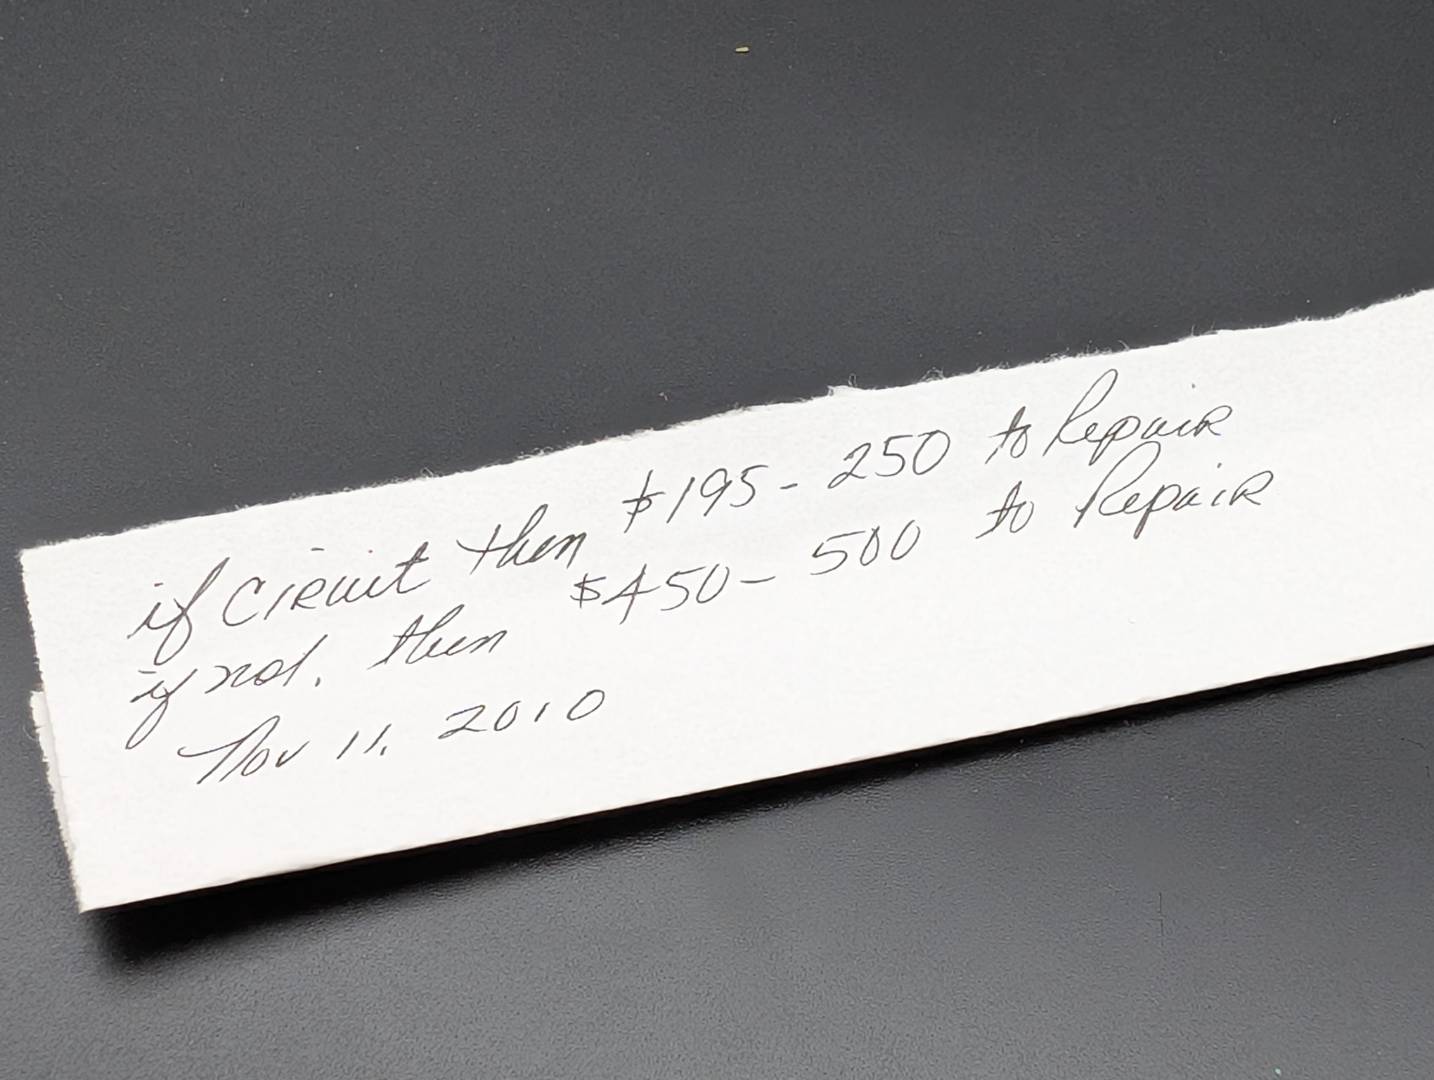 if circuit then $195 - 250 to Repair
if not. then $450 - 500 to Repair
Nov 11. 2010